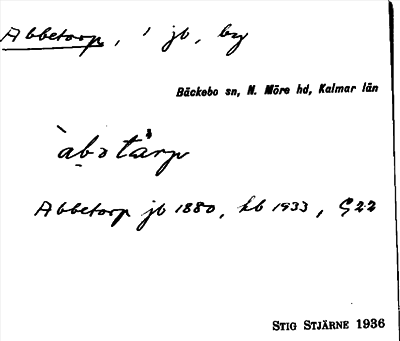 Abbetorp, 1 jb, by
Bäckebo sn, N. Möre hd, Kalmar län
Abbetorp jb 1880, kb 1933, G22
STIG STJÄRNE 1936